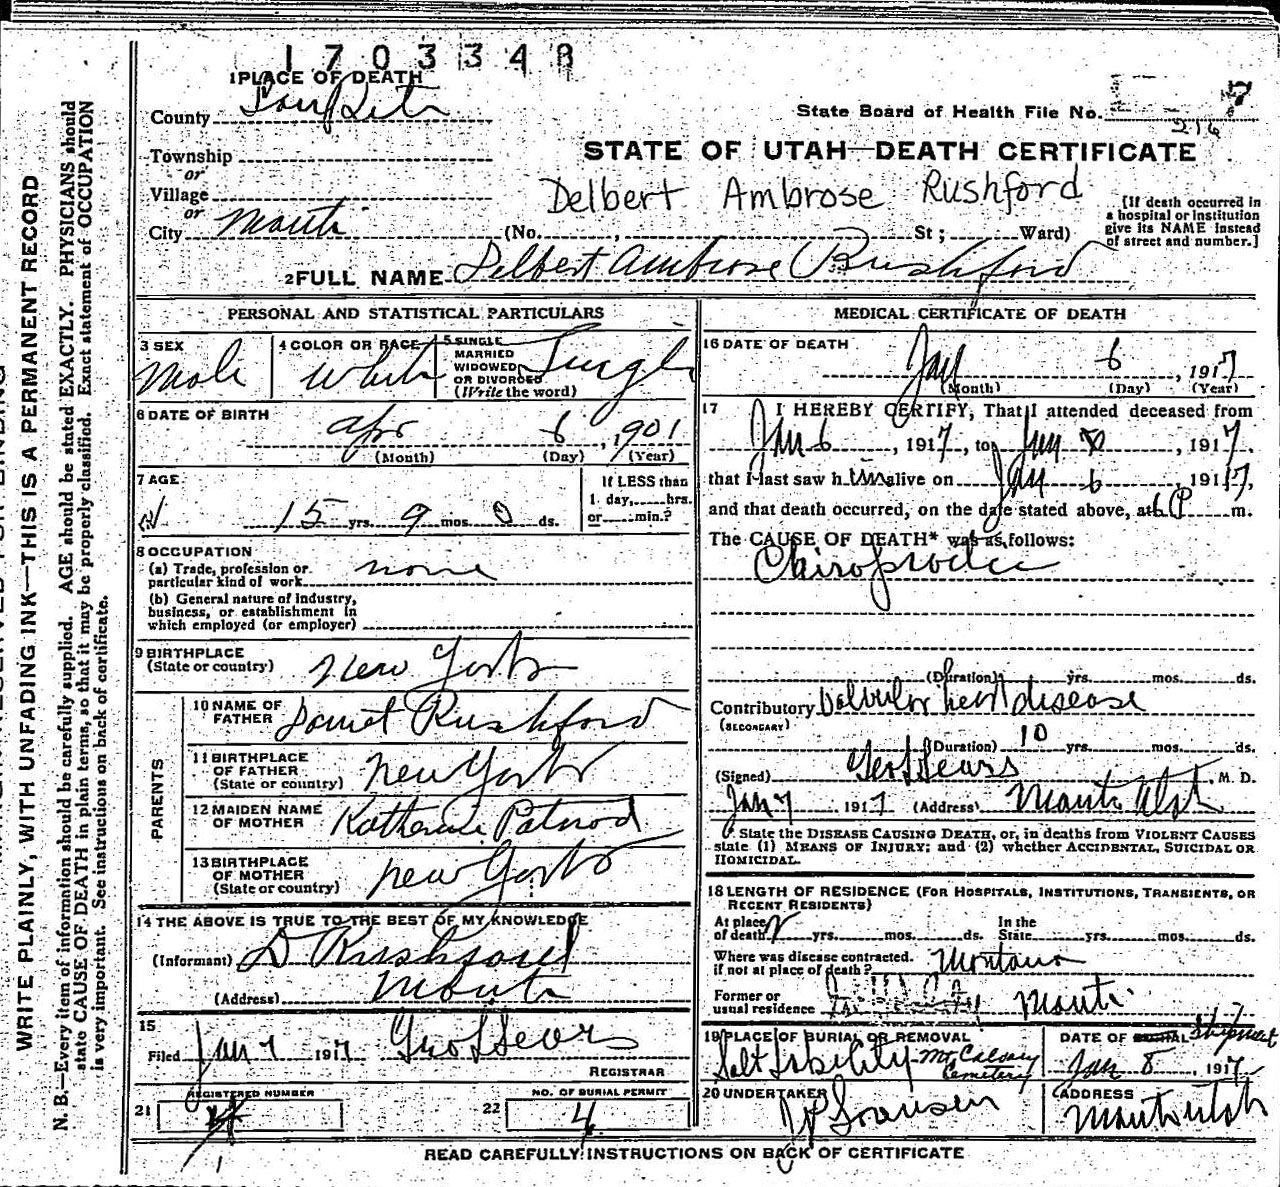 1703348
1 PLACE OF DEATH
County SanPete
State Board of Health File No. 7
216
Township
or
Village
or
City Manti
STATE OF UTAH—DEATH CERTIFICATE
Delbert Ambrose Rushford
(No. , St; Ward)
[If death occurred in
a hospital or institution
give its NAME instead
of street and number.]
2 FULL NAME Delbert Ambrose Rushford
PERSONAL AND STATISTICAL PARTICULARS
3 SEX
Male
4 COLOR OR RACE
White
5 SINGLE
MARRIED
WIDOWED
OR DIVORCED
(Write the word)
Single
6 DATE OF BIRTH
Apr 6, 1901
(Month) (Day) (Year)
7 AGE
15 yrs. 9 mos. 0 ds.
If LESS than
1 day, hrs.
or min.?
8 OCCUPATION
(a) Trade, profession or
particular kind of work none
(b) General nature of industry,
business, or establishment in
which employed (or employer)
9 BIRTHPLACE
(State or country) New York
PARENTS
10 NAME OF
FATHER Rushford
11 BIRTHPLACE
OF FATHER
(State or country) New York
12 MAIDEN NAME
OF MOTHER Katherine Patnod
13 BIRTHPLACE
OF MOTHER
(State or country) New York
14 THE ABOVE IS TRUE TO THE BEST OF MY KNOWLEDGE
(Informant) D Rushford
(Address) Manti
15
Filed Jan 7 1917 Geo L Sears
REGISTRAR
REGISTERED NUMBER
21
NO. OF BURIAL PERMIT
22 4
MEDICAL CERTIFICATE OF DEATH
16 DATE OF DEATH
Jan 6, 1917
(Month) (Day) (Year)
17 I HEREBY CERTIFY, That I attended deceased from
Jan 6, 1917, to Jan, 1917,
that I last saw him alive on Jan 6, 1917,
and that death occurred, on the date stated above, at 6 P m.
The CAUSE OF DEATH* was as follows:
(Duration) yrs. mos. ds.
Contributory Valvular heart disease
(SECONDARY)
(Duration) 10 yrs. mos. ds.
(Signed) Geo L Sears, M. D.
Jan 7 1917 (Address) Manti Utah
* State the DISEASE CAUSING DEATH, or, in deaths from VIOLENT CAUSES
state (1) MEANS OF INJURY; and (2) whether ACCIDENTAL, SUICIDAL OR
HOMICIDAL.
18 LENGTH OF RESIDENCE (FOR HOSPITALS, INSTITUTIONS, TRANSIENTS, OR
RECENT RESIDENTS)
At place
of death yrs. mos. ds.
In the
State yrs. mos. ds.
Where was disease contracted.
if not at place of death? Montana
Former or
usual residence Manti
19 PLACE OF BURIAL OR REMOVAL
Salt Lake City - Mt. Calvary
Cemetery
DATE OF BURIAL Shipment
Jan 8, 1917
20 UNDERTAKER
ADDRESS
Manti Utah
READ CAREFULLY INSTRUCTIONS ON BACK OF CERTIFICATE
WRITE PLAINLY, WITH UNFADING INK—THIS IS A PERMANENT RECORD
N. B.—Every item of information should be carefully supplied. AGE should be stated EXACTLY. PHYSICIANS should
state CAUSE OF DEATH in plain terms, so that it may be properly classified. Exact statement of OCCUPATION
is very important. See instructions on back of certificate.